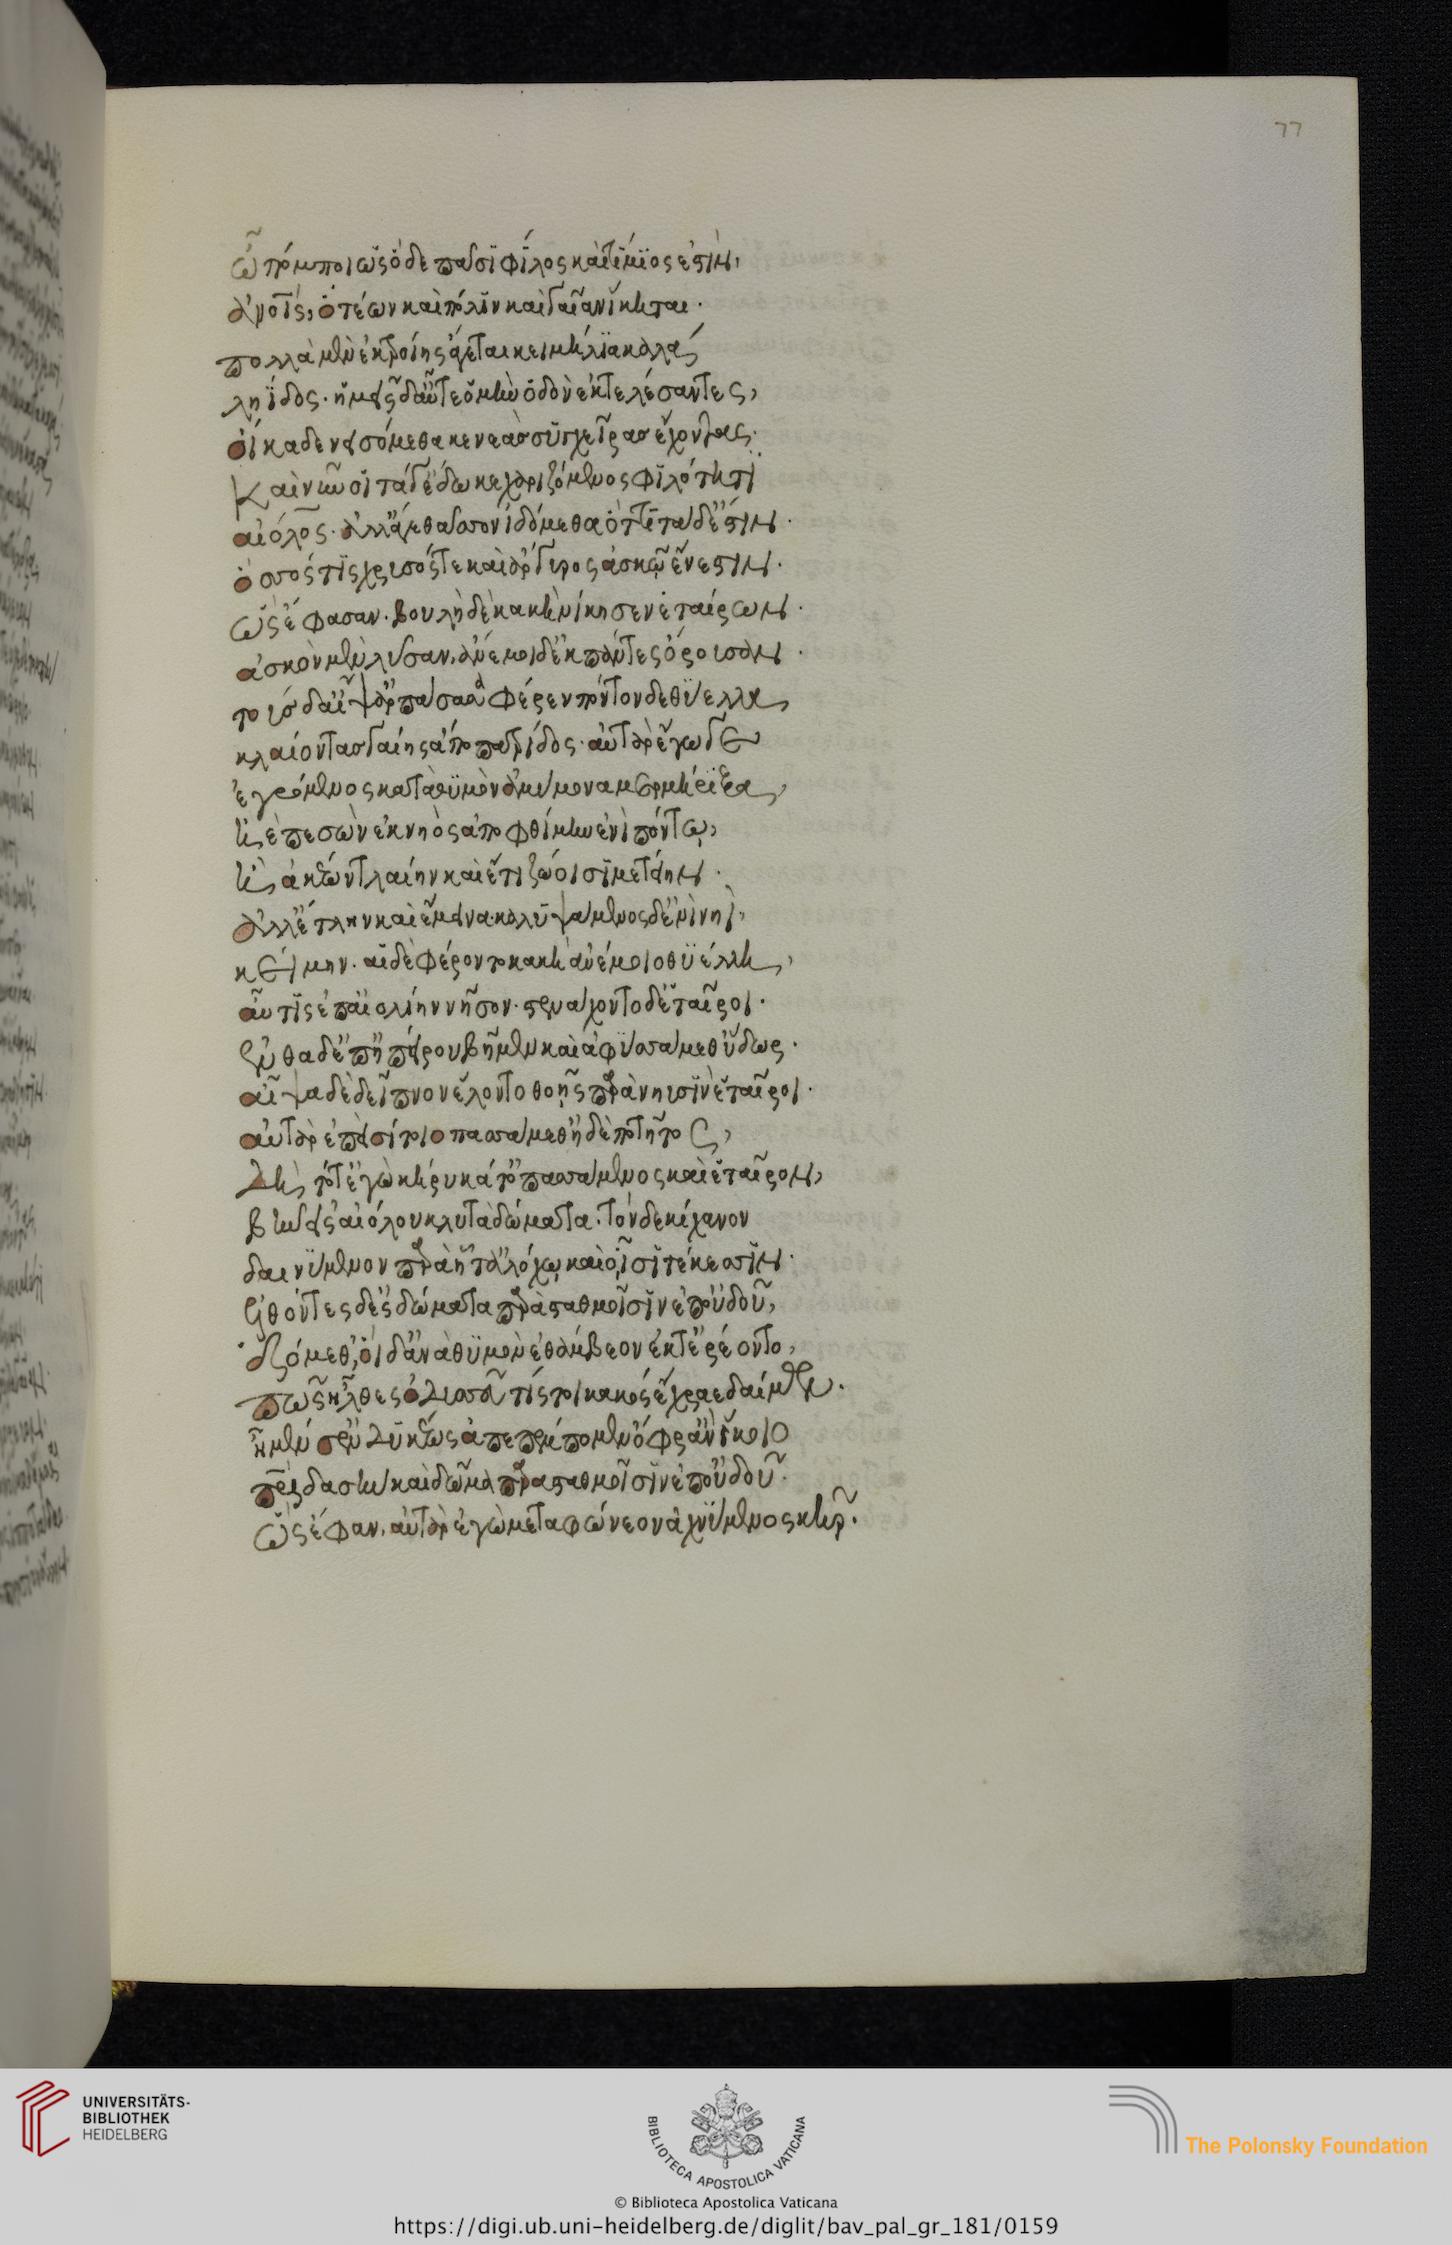 77
ὦ πόποι ὡς ὅδε πᾶσι φίλος καὶ τίμιος ἐστιν,
ἀνθρώποις, ὅτέων καὶ πόλιν καὶ γαῖαν ἵκηται.
πολλὰ μὲν ἐκ τροίης ἄγεται κειμήλια καλὰ
ληΐδος. ἡμεῖς δ αὖτε ὁμὴν ὁδὸν ἐκτελέσαντες,
οἴκαδε νεισόμεθα κενεὰσ σὺν χεῖρασ ἔχοντας.
Καὶ νῦν οἱ τάδ ἔδωκε χαριζόμενος φιλότητι
αἰόλος. ἀλλ ἄγε θᾶσσον ἰδόμεθα ὅττι τάδ ἐστιν.
ὅσσός τις χρυσός τε καὶ ἄργυρος ἀσκῷ ἔνεστιν.
ὣς ἔφασαν. βουλὴ δὲ κακὴ νίκησεν ἑταίρων.
ἀσκὸν μὲν λῦσαν, ἄνεμοι δ ἐκ πάντες ὄρουσαν.
τοὺσ δ αἶψ ἁρπάσασα φέρεν πόντον δε θύελλα,
κλαίοντασ γαίης ἄπο πατρίδος. αὐτὰρ ἔγωγε
ἐγρόμενος κατὰ θυμὸν ἀμύμονα μερμήριξα,
ἠὲ πεσὼν ἐκ νηὸς ἀποφθίμην ἐνὶ πόντῳ,
ἦ ἀκέων τλαίην καὶ ἔτι ζωοῖσι μετείην.
ἀλλ ἔτλην καὶ ἔμεινα. καλυψάμενος δ ἐνὶ νηῒ,
κείμην. αἱ δὲ φέροντο κακῇ ἀνέμοιο θυέλλῃ,
αὖτις ἐπ αἰολίην νῆσον. στενάχοντο δ ἑταῖροι.
ἔνθα δ ἐπ ἠπείρου βῆμεν καὶ ἀφυσάμεθ ὕδωρ.
αἶψα δὲ δεῖπνον ἕλοντο θοῇς παρὰ νηυσὶν ἑταῖροι.
αὐτὰρ ἐπεὶ σίτοιο πασσάμεθ ἠδὲ ποτῆτος,
δὴ τότ ἐγὼ κήρυκά τ ὀπασσάμενος καὶ ἑταῖρον,
βῆν εἰς αἰόλου κλυτὰ δώματα. τὸν δ ἐκίχανον
δαινύμενον παρὰ ᾗ τ ἀλόχῳ καὶ οἷσι τέκεσσιν.
ἐλθόντες δ ἐς δώματα παρὰ σταθμοῖσιν ἐπ οὐδοῦ,
ἑζόμεθ, οἱ δ ἀνὰ θυμὸν ἐθάμβεον ἐκ τ ἐρέοντο,
πῶς ἦλθες ὀδυσσεῦ τίς τοι κακός ἔχραε δαίμων.
ἦ μέν σ ἐνδυκέως ἀπεπέμπομεν ὄφρ ἂν ἵκοιο
πατρίδα σὴν καὶ δῶμα παρὰ σταθμοῖσιν ἐπ οὐδοῦ.
ὣς ἔφαν. αὐτὰρ ἐγὼ μεταφώνεον ἀχνύμενος κῆρ.
UNIVERSITÄTS-
BIBLIOTHEK
HEIDELBERG
BIBLIOTECA APOSTOLICA VATICANA
The Polonsky Foundation
© Biblioteca Apostolica Vaticana
https://digi.ub.uni-heidelberg.de/diglit/bav_pal_gr_181/0159